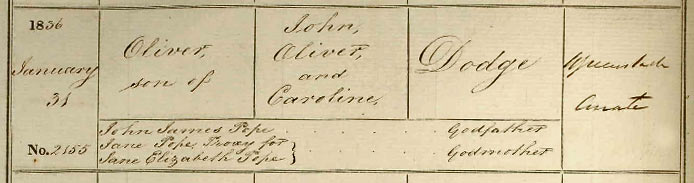 1836
January
31
No. 2155
Oliver,
son of
John,
Oliver,
and
Caroline,
Dodge
Curate
John James Pope . . . . Godfather
Jane Pope, Proxy for
Jane Elizabeth Pope } . . . . Godmother